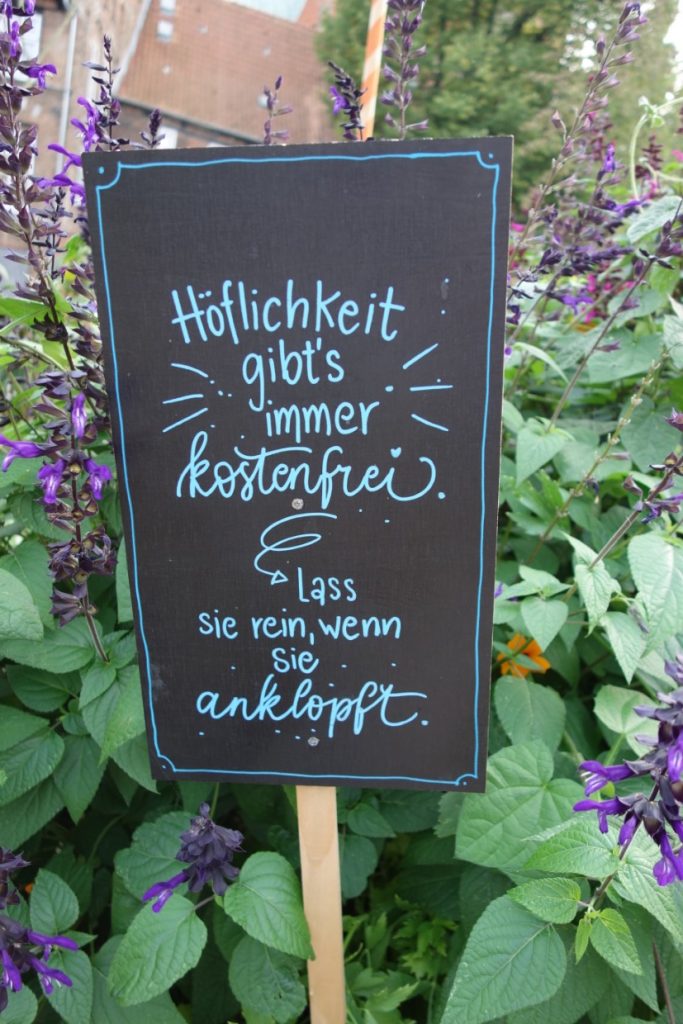 Höflichkeit
gibt's
immer
kostenfrei.
Lass
sie rein, wenn
sie
anklopft.